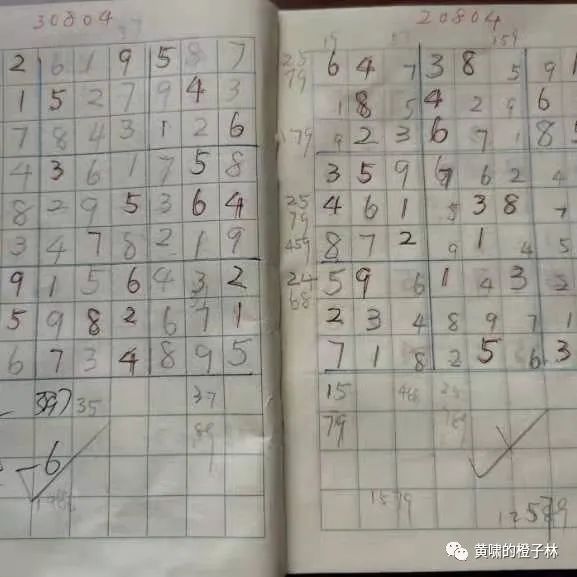 30804
2 6 1 9 5 8 7
1 5 2 7 9 4 3
7 8 4 3 1 2 6
4 3 6 1 7 5 8
8 2 9 5 3 6 4
3 4 7 8 2 1 9
9 1 5 6 4 3 2
5 9 8 2 6 7 1
6 7 3 4 8 9 5
397 35 37
89
-6
20804
19 37 159
25 6 4 7 3 8 5 9 1
79 1 8 5 4 2 9 6
179 9 2 3 6 7 1 8 5
3 5 9 7 6 2 4
25 4 6 1 5 3 8 7
79
459 8 7 2 9 1 4 5
24 5 9 6 1 4 3 2
68 2 3 4 8 9 7 1
7 1 8 2 5 6 3
15 468 25
79 769
1579 12589
黄啸的橙子林